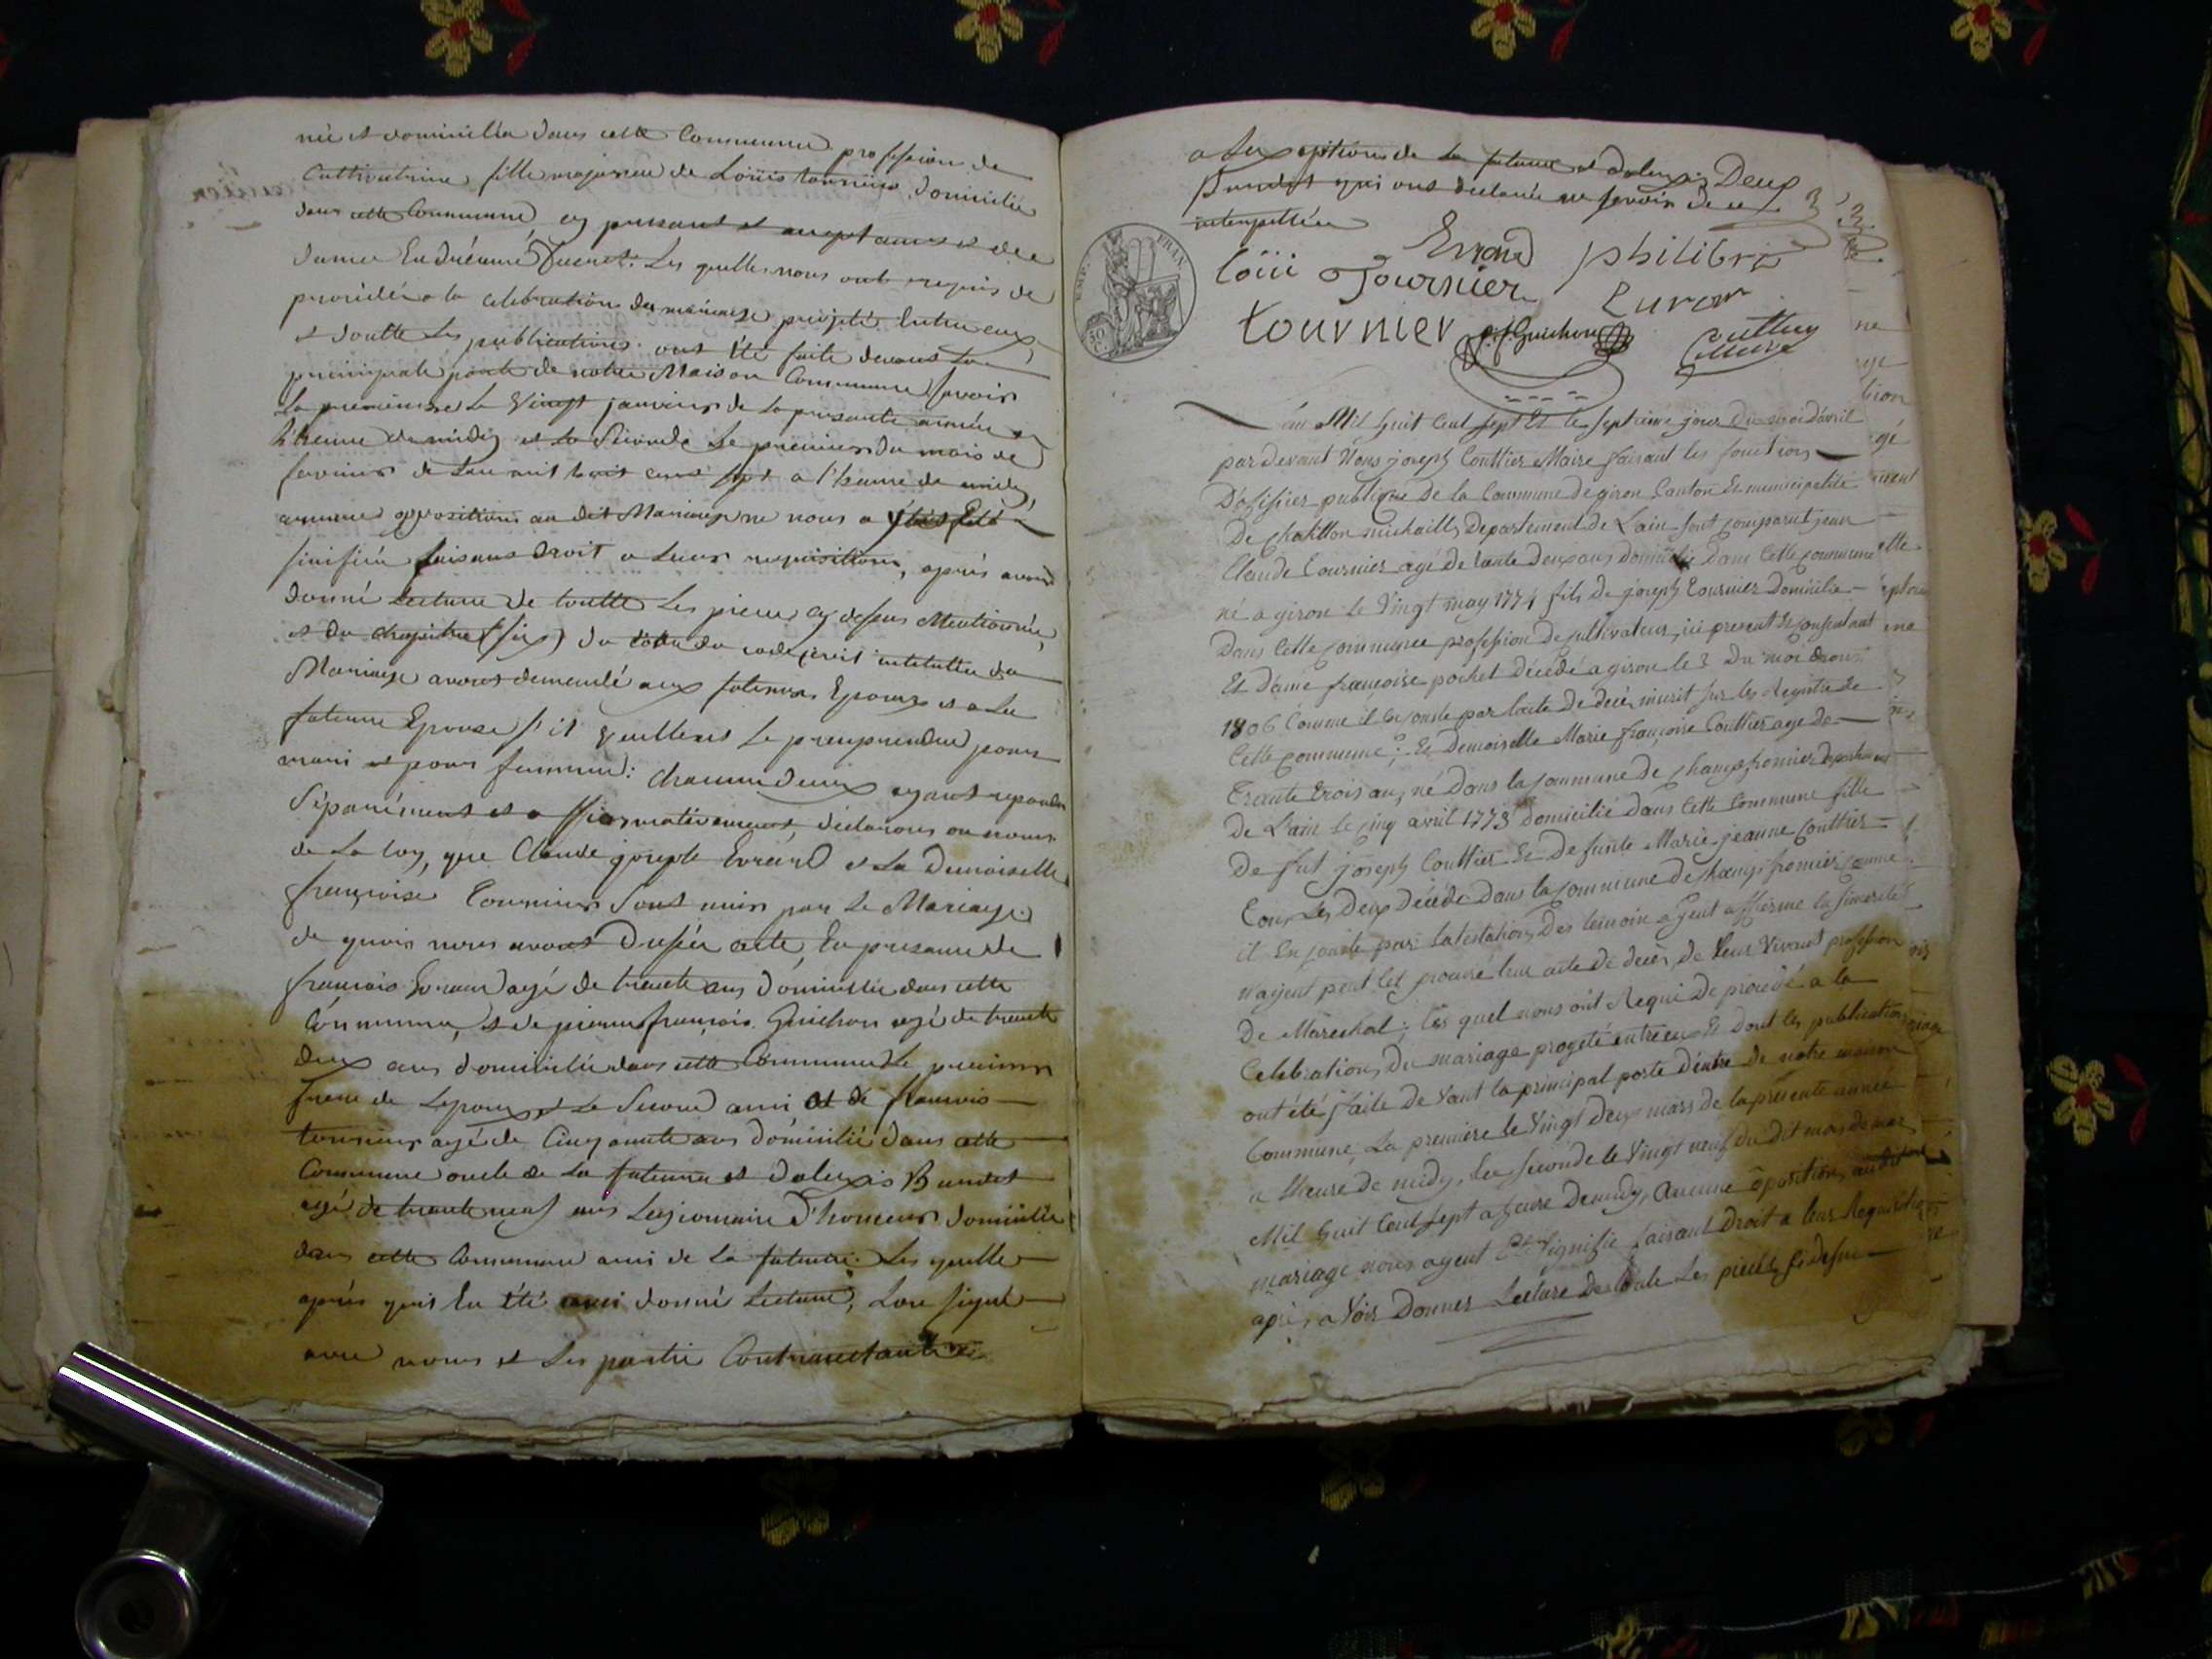 née et domiciliée dans cette Commune profession de
Cultivatrice fille majeure de Loüis tournier domicilié
dans cette Commune cy présent et acceptant et de
dame Andréanne Les quelles nous ont requis de
procéder a la celebration du mariage projeté Entre eux,
et doutte Les publications ont été faite devant La
principale porte de notre Maison Commune savoir
La premiere le Vingt janvier de La presente année a
l'heure de midy et la Seconde Le premier du mois de
fevrier de Lan mil huit cent sept a l'heure de midy,
aucune opposition au dit Mariage ne nous a
sinifiée faisant Droit a Leurs requisitions, après avoir
donné Lecture de toutte Les piece cy dessus Mentionnée,
et du chapitre (six) du code civil intitullée du
Mariage avons demendé aux futeurs Epoux et a La
future Epouse s'il veullent Le prenprendre pour
mari et pour femme: chacun deux ayant repondu
Séparément et affirmativement, déclarons au nom
de La loy, que Claude joseph Evrard et La Demoiselle
françoise Tournier Sont unis par Le Mariage
de quoi nous avons Dressée acte, En presance de
francois Evrard agé de trente ans dómicilié dans cette
Commune, et de pierre françois Guichon agé de trente
deux ans domicilié dans cette Commune Le premier
frere de Lepoux et Le Second ami et de francois
tournier agé de Cinquante ans dómicilié dans cette
Commune oncle de La future et dalexis Burdet
agé de trente neuf ans Legionaire d'honneur domicilié
dans cette Commune ami de La future. Les quelle
après quil En été aussi donné Lecture, Lon signé
avec nous et Les partie Contractante
a Lexseption de La future et dalexis Deux
Burdet qui ont declarée ne savoir de ce
interpellée
EMP. FRAN.
50 C.
Evrard philibri
loüi Tournier Euror
tournier p. f. Guichon Couttier
Maire
Lán Mil huit Cent Sept Et le Septieme jour du moi davril
par devant Nous joseph Couttier Maire faisant les fonctions
Dofisier publique De la Commune de giron Canton Et municipalité
De chatillon michaille Departement de Lain sont comparut jean
Claude Tournier agé De trante Deux ans Domicilié Dans Cette commune
né a giron Le Vingt may 1774 fils De joseph Tournier Domicilié
Dans Cette commune profession De cultivateur, ici present Et consentant
Et Dame françoise pochet décédé a giron le 3 Du moi daoust
1806 Comme il En conste par lacte De decé inscrit sur les Registre De
Cette commune; Et Demoiselle Marie françoise Couttier age De
Trante trois ans, né Dans la commune De champfromier departement
De Lain Le cinq avril 1773 Domicilié Dans Cette Commune fille
De fut joseph Couttier Et De funte Marie jeanne Couttier
Tous Les Deux Décédé Dans la commune De champfromier comme
il En conste par Latestation Des temoin agent affirme la sincerité
n'ayent peut Les trouvé leur acte De decès, De leur Vivant profession
De Marechal; Les quel nous ont Requi De procedé a la
Celebration Du mariage progeté entre eux Et Dont les publications
ont été faite De vant la principal porte D'entré De notre maison
Commune, La premiere le Vingt Deux mars De la presente année
a Lheure De midy, La seconde le Vingt neuf du dit moi De mar
Mil huit Cent Sept a heure De midy, Aucune oposition au dit
mariage nous ayent Eté signifié faisant Droit a leur Requisition
après a Voir Donner Lecture De toute Les pieces ci desu